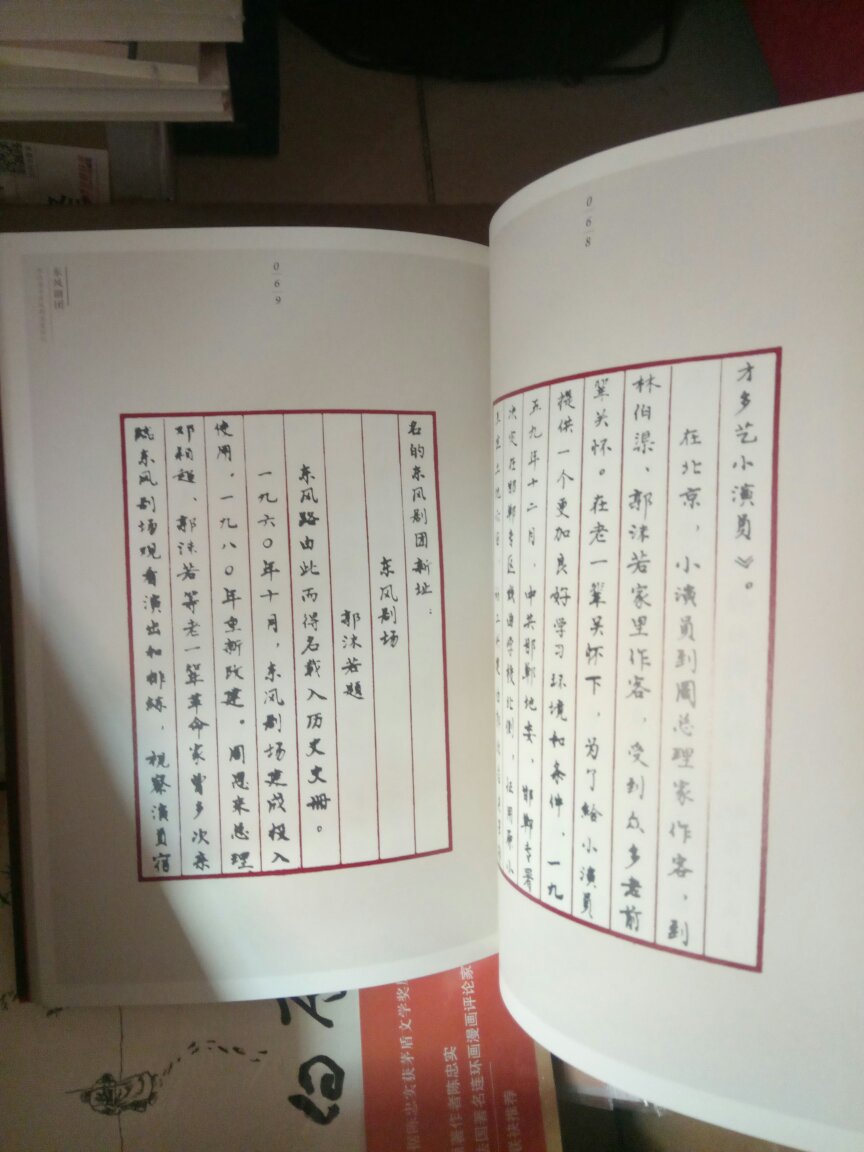 068
才多艺小演员》。
在北京，小演员到周总理家作客，到
林伯渠、郭沫若家里作客，受到众多老前
辈关怀。在老一辈关怀下，为了给小演员
提供一个更加良好学习环境和条件，一九
五九年十二月，中共邯郸地委、邯郸专署
决定在邯郸专区戏曲学校北侧，征用
069
东风剧团
名的东风剧团新址：
东风剧场
郭沫若题
东风路由此而得名载入历史文册。
一九六〇年十月，东风剧场建成投入
使用。一九八〇年重新改建。周恩来总理、
邓颖超、郭沫若等老一辈革命家曾多次来
院东风剧场观看演出和排练，视察演员宿
茅盾文学奖
著作者陈忠实
法国著名连环画漫画评论家
联袂推荐